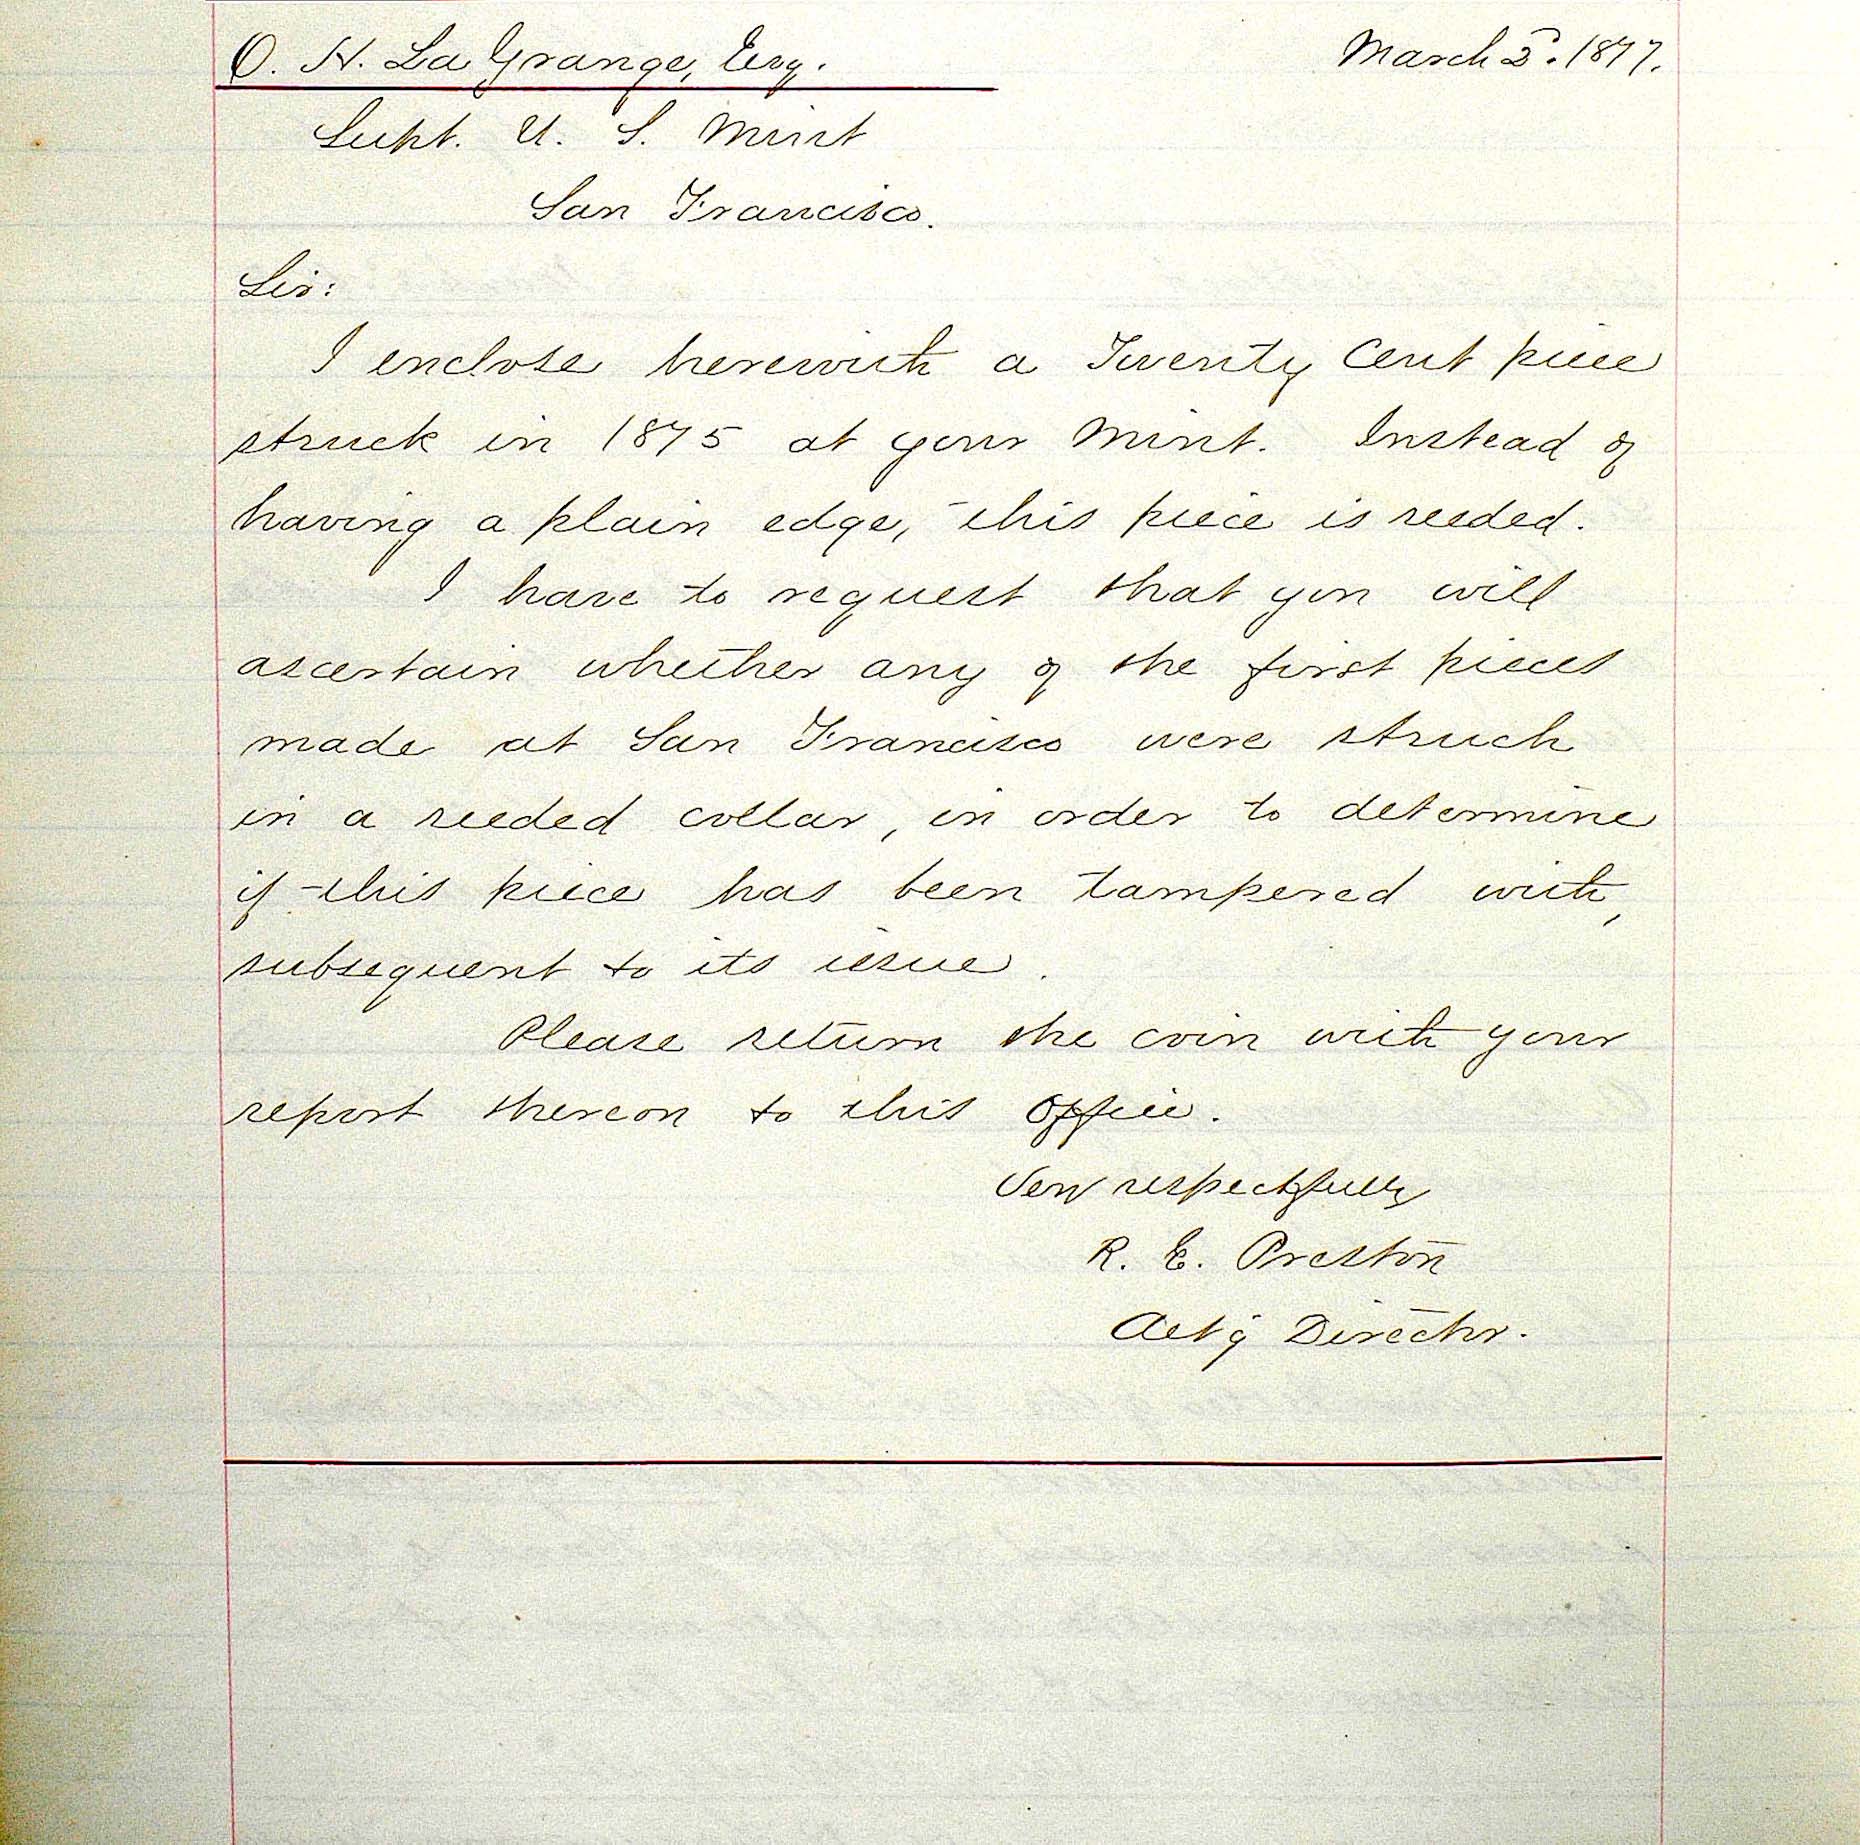 O. H. La Grange, Esq. March 3. 1877.
Supt. U. S. Mint
San Francisco.
Sir:
I enclose herewith a Twenty Cent piece
struck in 1875 at your Mint. Instead of
having a plain edge, this piece is reeded.
I have to request that you will
ascertain whether any of the first pieces
made at San Francisco were struck
in a reeded collar, in order to determine
if this piece has been tampered with,
subsequent to its issue.
Please return the coin with your
report thereon to this Office.
Very respectfully
R. E. Preston
Act'g Director.